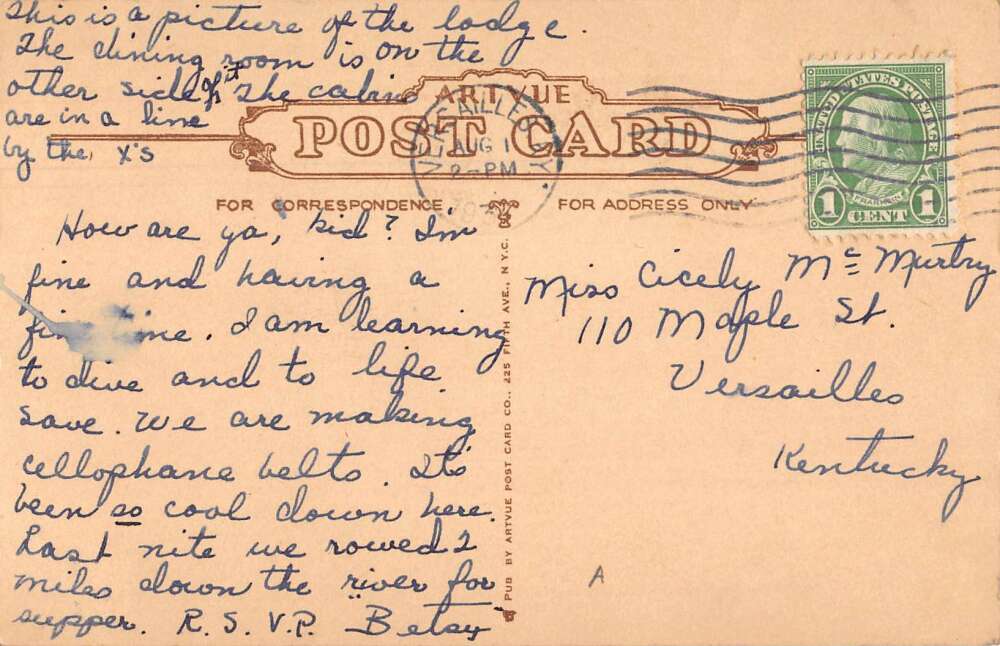 This is a picture of the lodge.
The dining room is on the
other side of it The cabins
are in a line
by the x's
ARTVUE
POST CARD
VERSAILLES
AUG 1
2-PM
KY.
UNITED STATES POSTAGE
FRANKLIN
1 CENT 1
FOR CORRESPONDENCE
FOR ADDRESS ONLY
How are ya, kid? I'm
fine and having a
fine time. I am learning
to dive and to life
save. We are making
cellophane belts. It's
been so cool down here.
Last nite we rowed 2
miles down the river for
supper. R. S. V. P. Betsy
PUB BY ARTVUE POST CARD CO., 225 FIFTH AVE., N.Y.C.
Miss Cicely Mc Murtry
110 Maple St.
Versailles
Kentucky
A